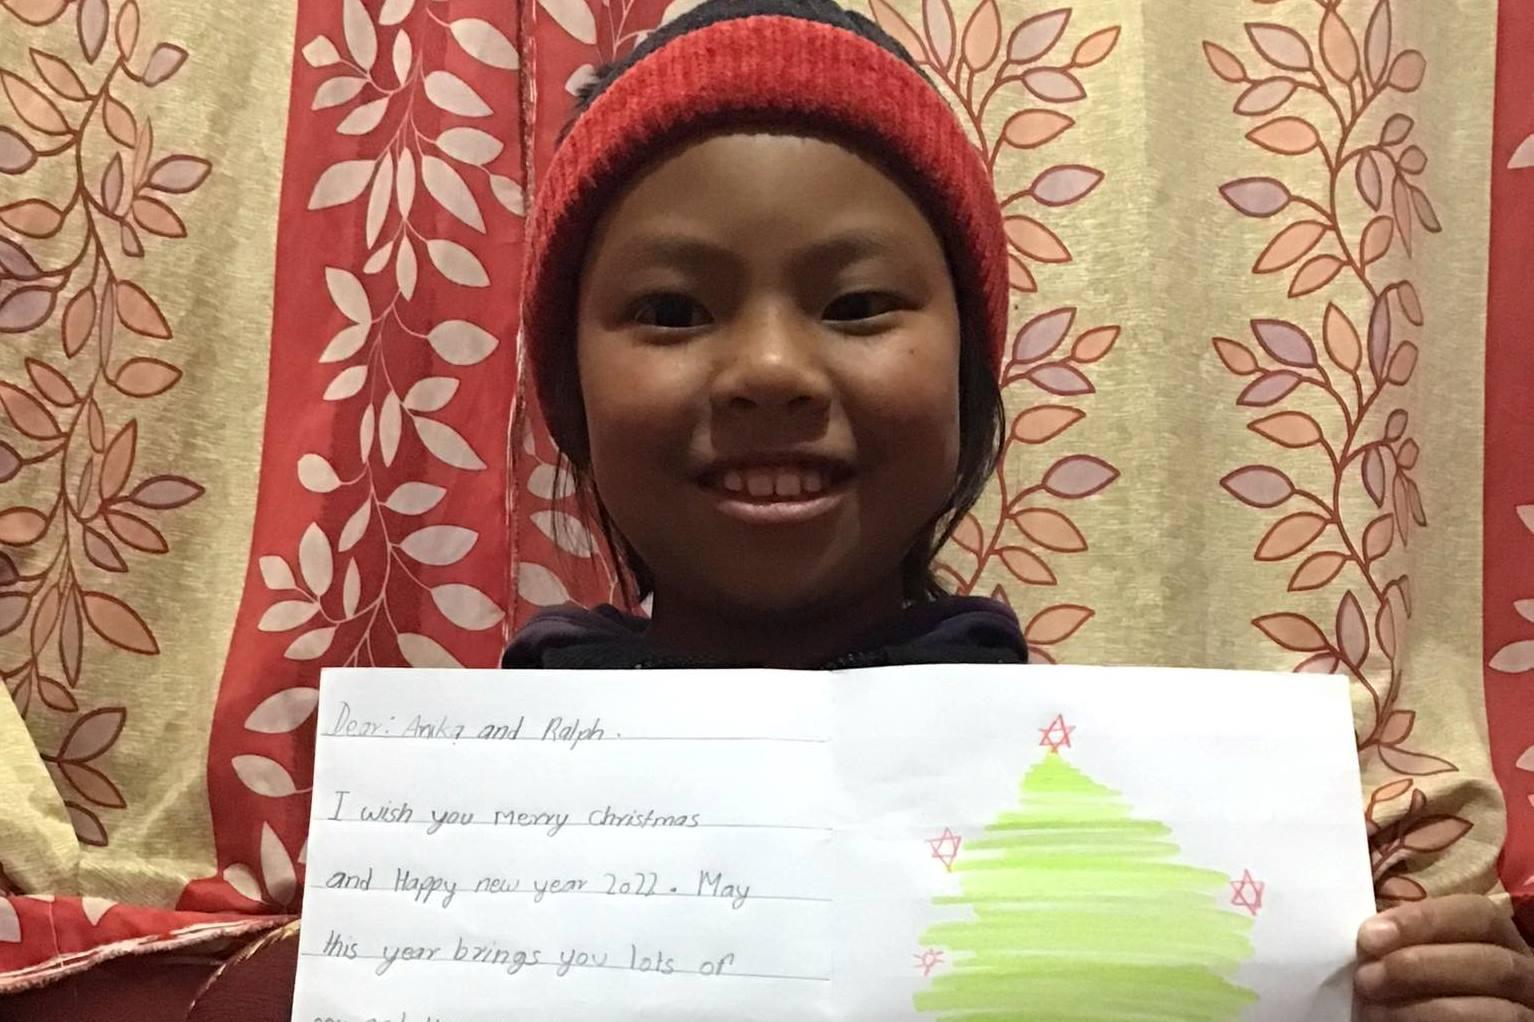 Dear: Anika and Ralph.
I wish you merry christmas
and Happy new year 2022. May
this year brings you lots of